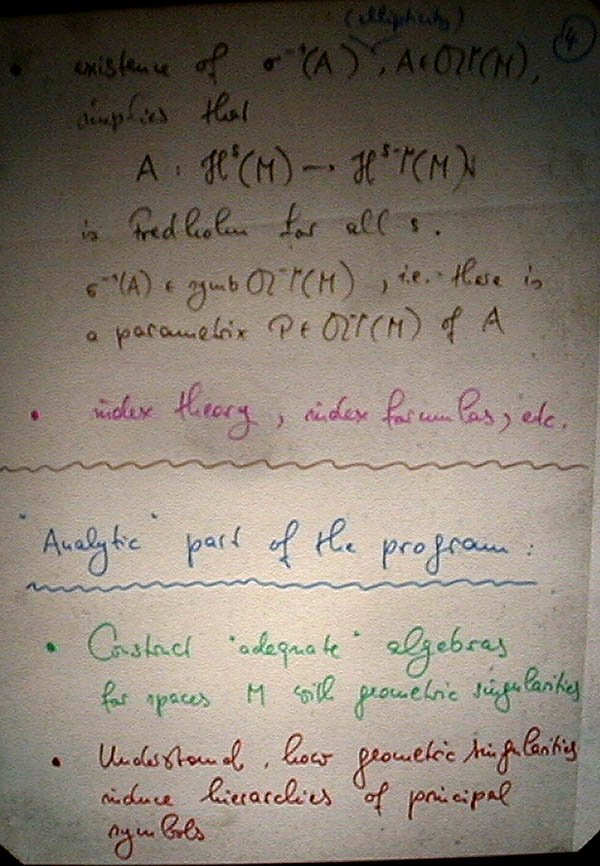 (ellipticity)
4
• existence of σ⁻¹(A), A ∈ 𝔄^μ(M),
implies that
A : ℋ^s(M) → ℋ^{s-μ}(M)
is Fredholm for all s.
σ⁻¹(A) ∈ symb 𝔄^{-μ}(M), i.e. there is
a parametrix P ∈ 𝔄^{-μ}(M) of A
• index theory, index formulas, etc.
"Analytic" part of the program:
• Construct "adequate" algebras
for spaces M with geometric singularities
• Understand, how geometric singularities
induce hierarchies of principal
symbols